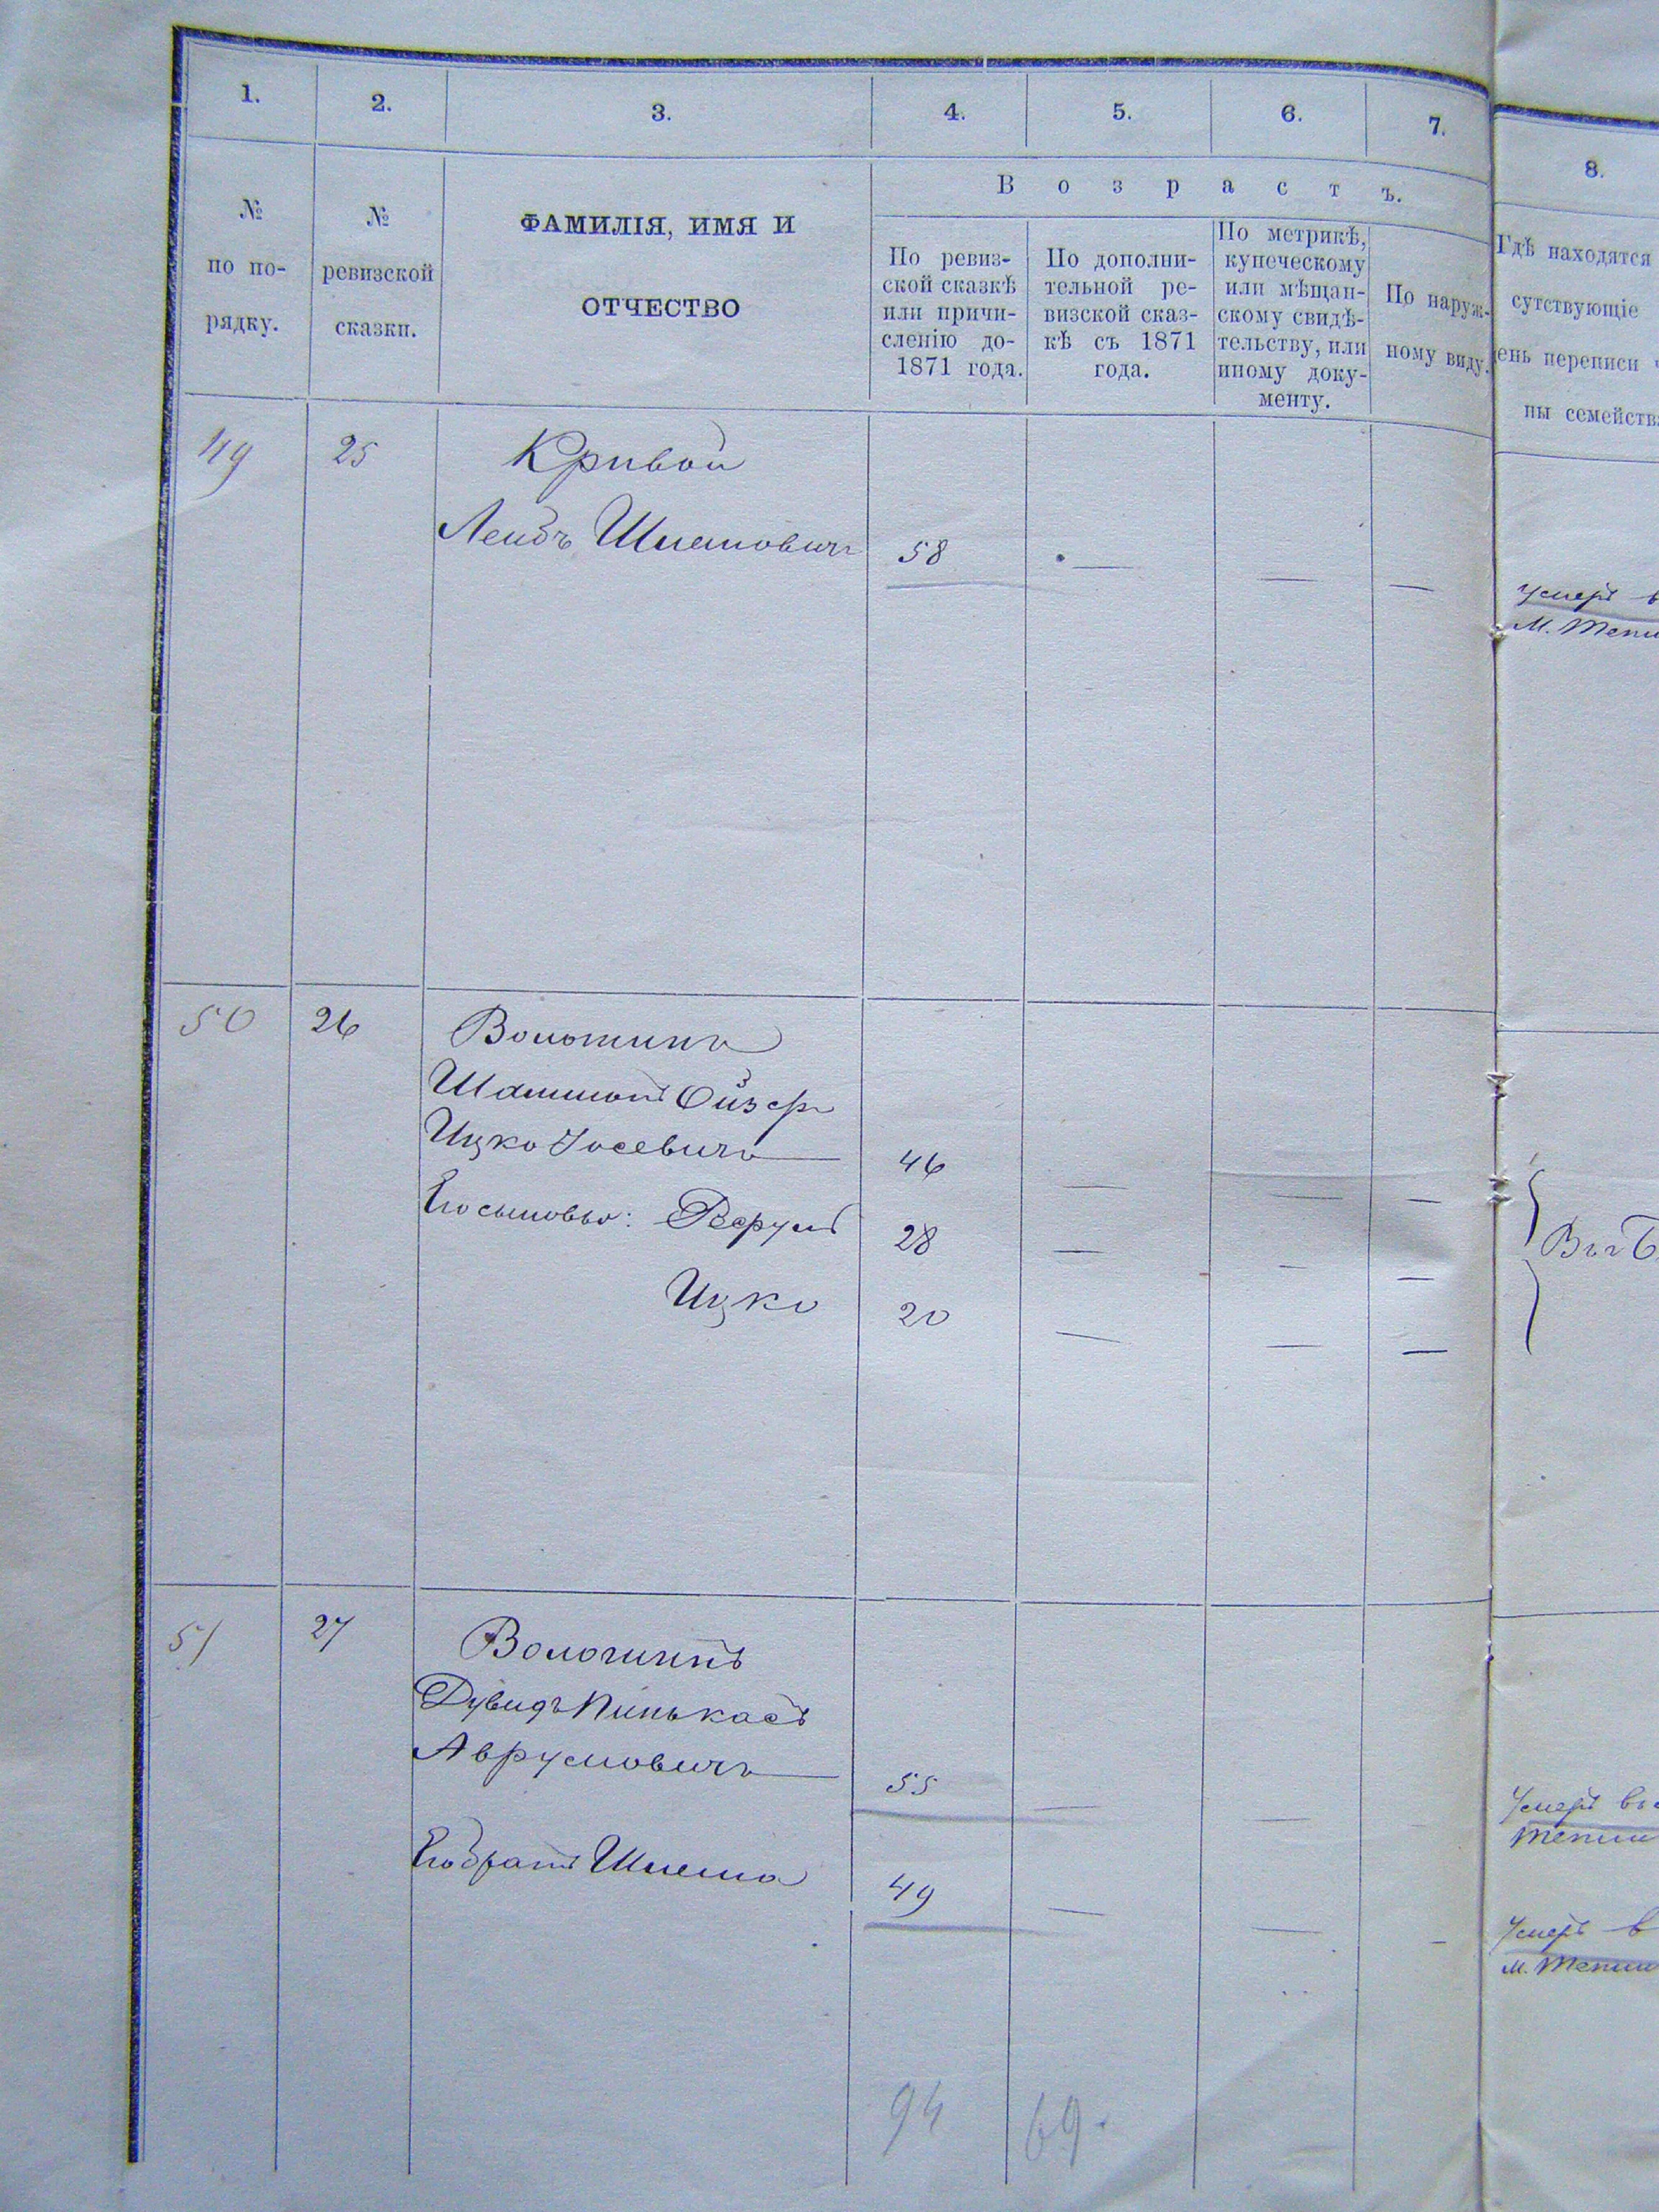 1. 2. 3. 4. 5. 6. 7. 8.
В о з р а с т ъ.
№ по по- рядку.
№ ревизской сказки.
ФАМИЛІЯ, ИМЯ И
ОТЧЕСТВО
По ревиз-
ской сказкѣ
или причи-
сленію до-
1871 года.
По дополни-
тельной ре-
визской сказ-
кѣ съ 1871
года.
По метрикѣ,
купеческому
или мѣщан-
скому свидѣ-
тельству, или
иному доку-
менту.
По наруж-
ному виду.
Гдѣ находятся
сутствующіе
ень переписи ч
ны семейства
49 25 Кривой
Лейбъ Шлемовичъ 58 — — —
Умеръ в
м.
50 26 Воложинъ
Ойзеръ
Ицко Іосевичъ 46 — — —
Его сыновья: 28 — — —
Ицко 20 — — —
51 27 Воложинъ
Дувидъ Пинькасъ
Аврумовичъ 55 — —
Умеръ въ
Его братъ Шлема 49 — — —
Умеръ в
м.
94 69.